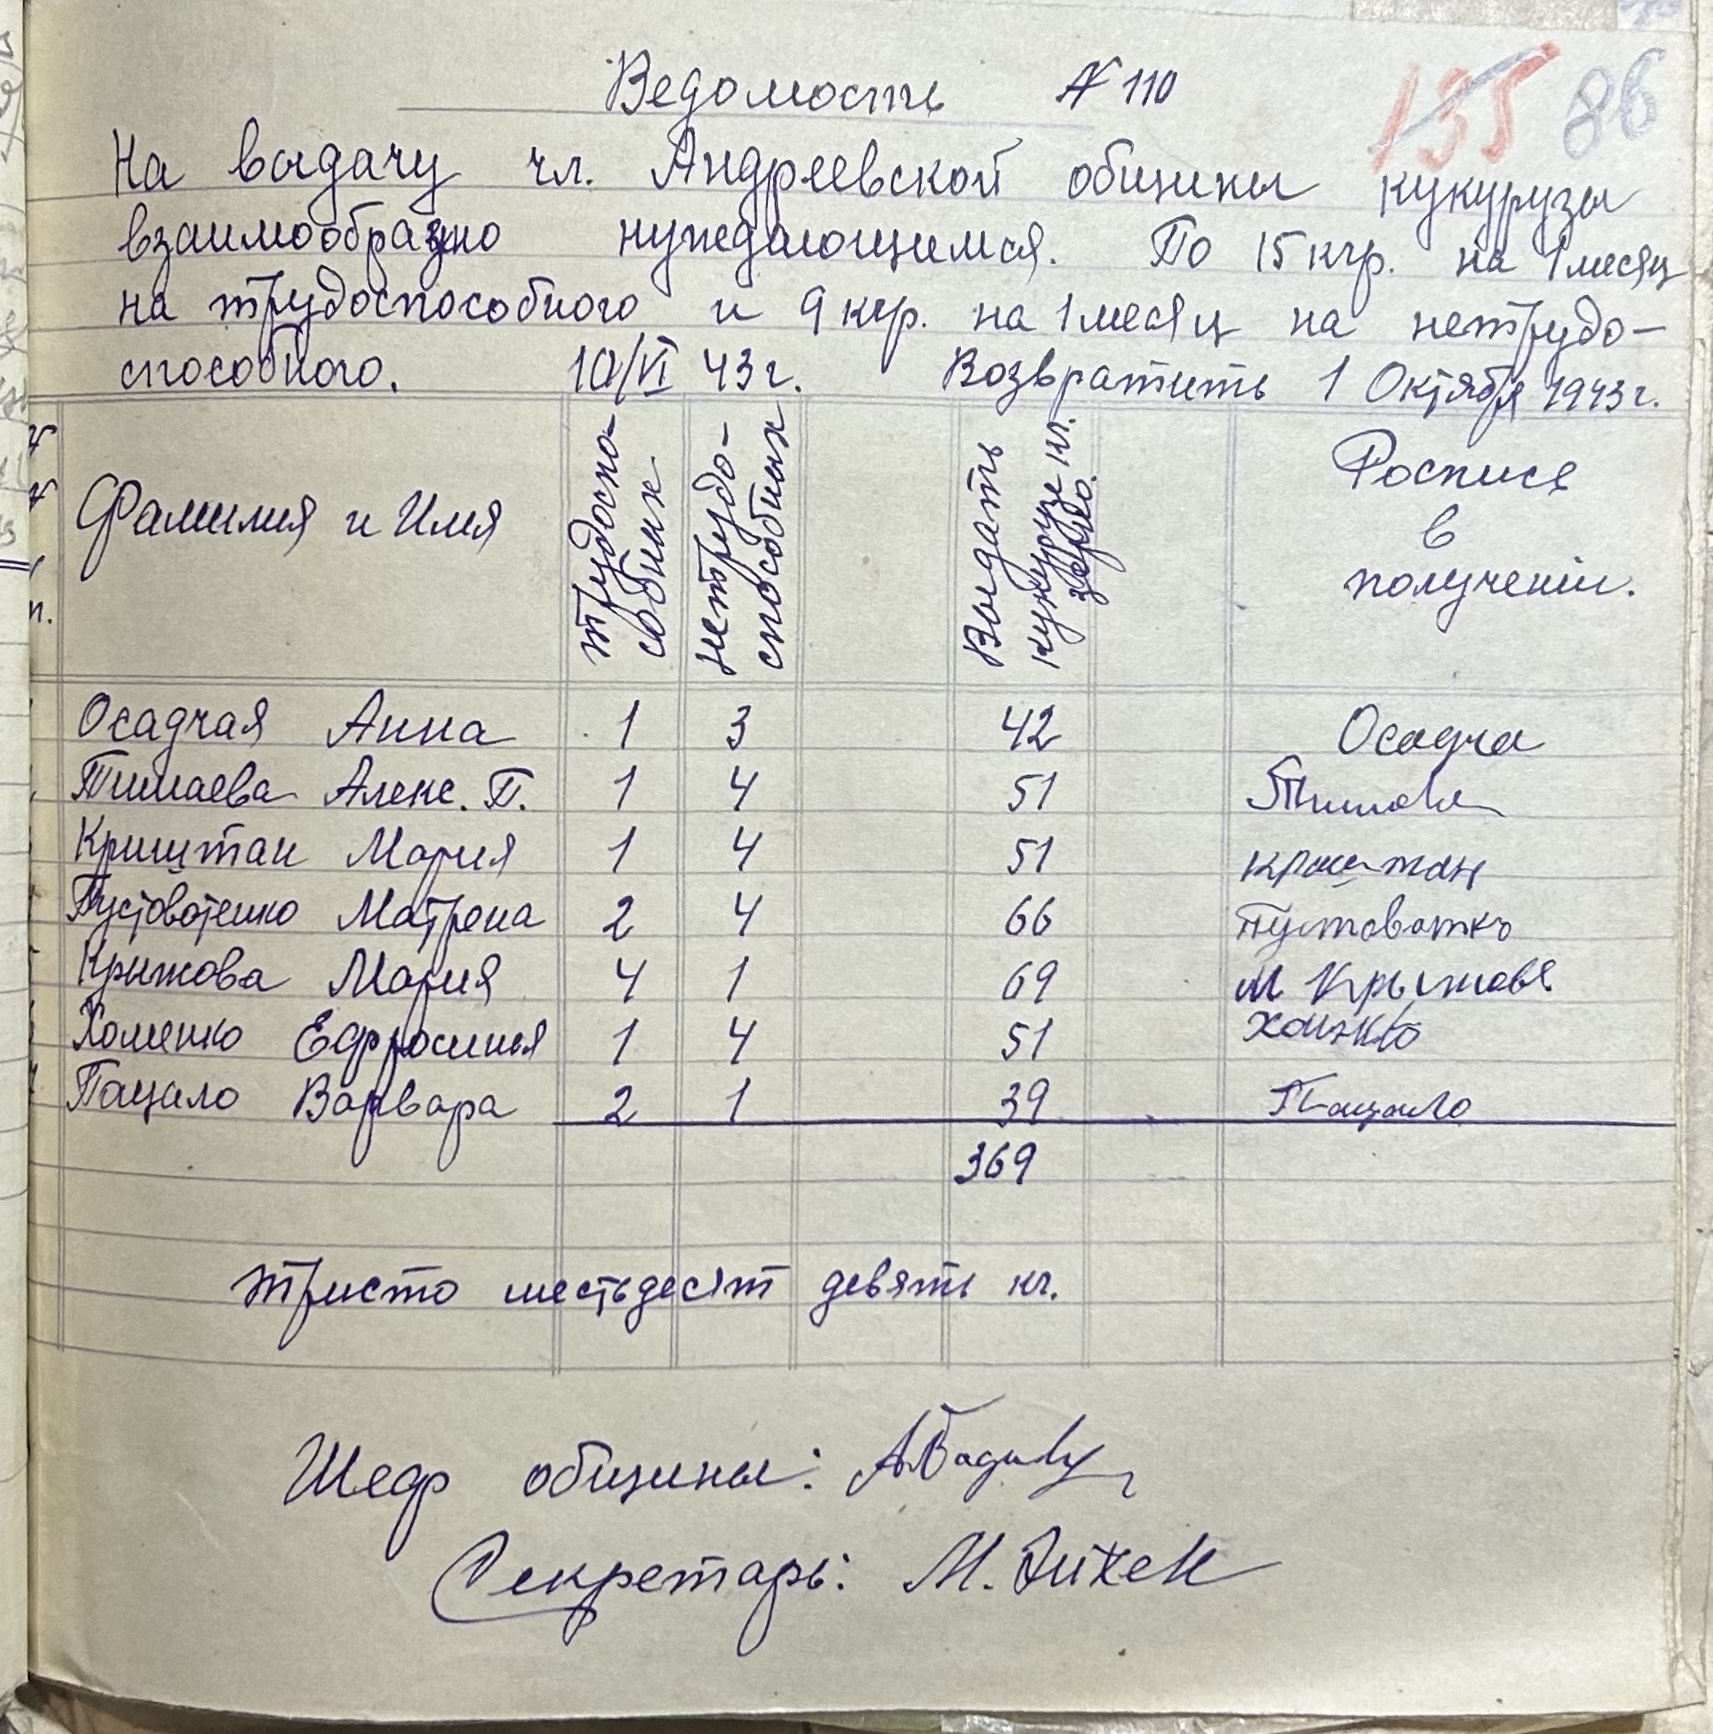 Ведомость № 110
135 86
На выдачу чл. Андреевской общины кукурузы
взаимообразно нуждающимся. По 15 кгр. на 1 месяц
на трудоспособного и 9 кгр. на 1 месяц на нетрудо-
способного. 10/VI 43 г. Возвратить 1 Октября 1943 г.
Фамилия и Имя
трудоспо-
собных
нетрудо-
способных
Выдать
кукурузе кг.
зерно.
Роспися
в
получении.
Осадчая Анна 1 3 42 Осадча
Тимаева Алекс. П. 1 4 51
Криштан Мария 1 4 51 криштан
Пустовотенко Матрена 2 4 66 Пустоватко
Крыжова Мария 4 1 69 М Крыжова
Хоменко Ефросинья 1 4 51
Пацало Варвара 2 1 39 Пацало
369
тристо шестьдесят девять кг.
Шеф общины:
Секретарь: М.